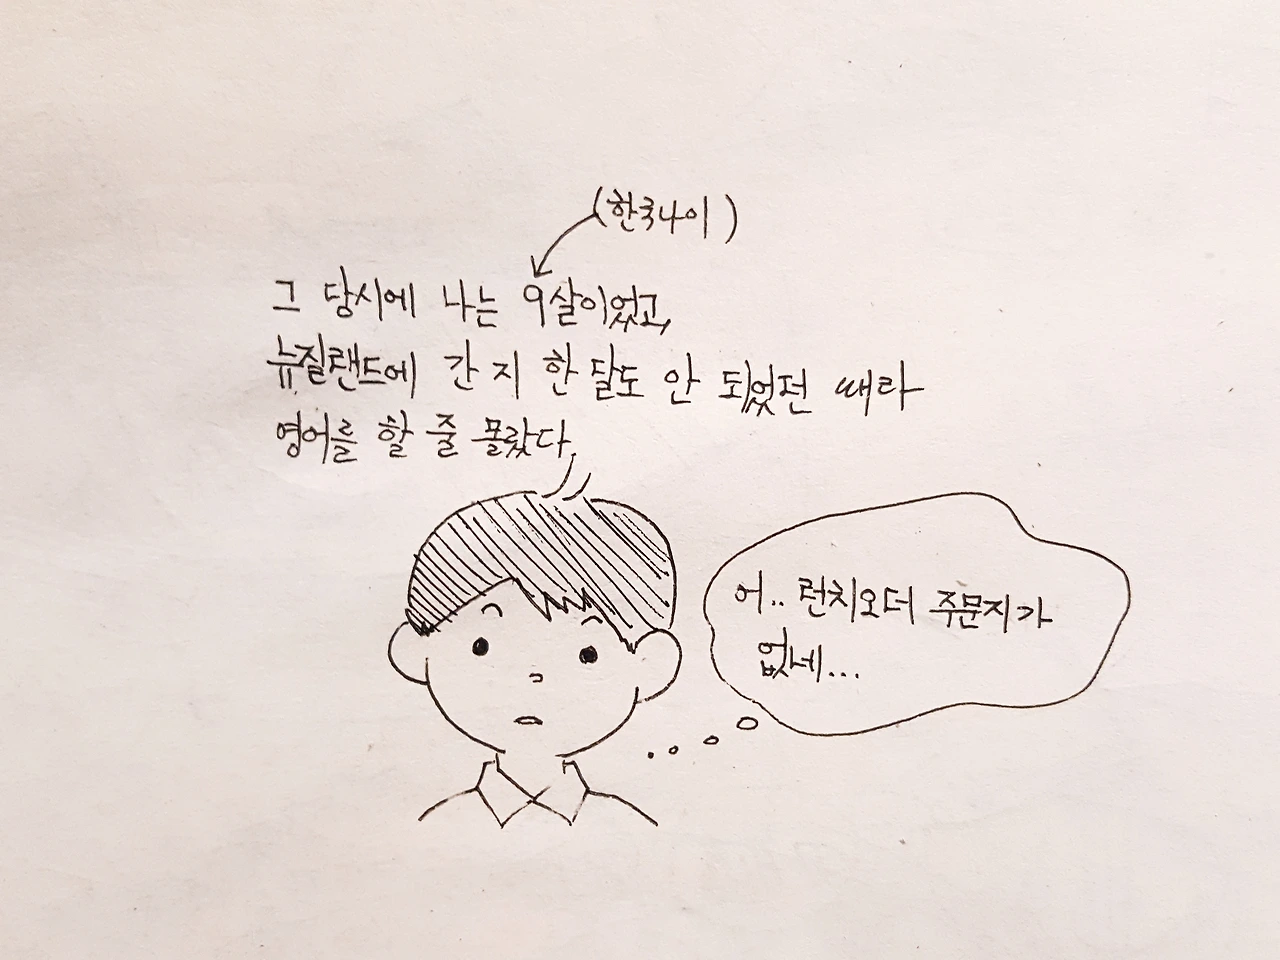 (한국나이)
그 당시에 나는 9살이었고,
뉴질랜드에 간 지 한 달도 안 되었던 때라
영어를 할 줄 몰랐다.
어.. 런치오더 주문지가
없네...